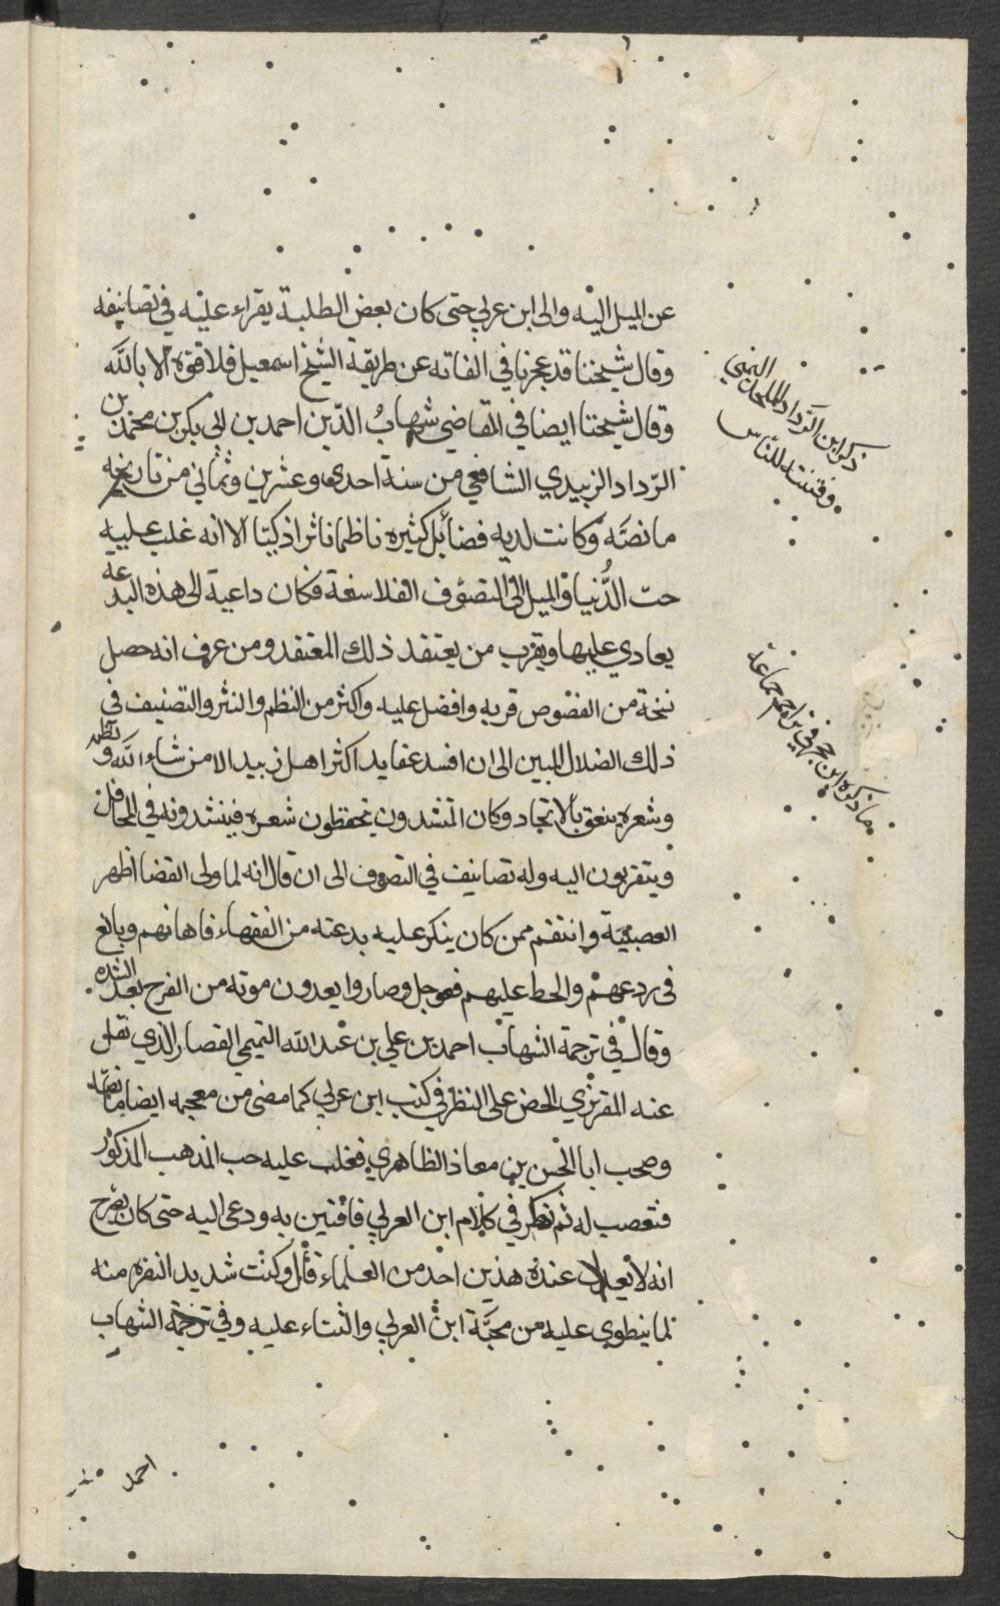 عن الميل اليه والى ابن عربي حتى كان بعض الطلبة يقراء عليه في تصانيفه
وقال شيخنا قد عجزنا في الفاته عن طريقة الشيخ اسمعيل فلا قوة الا بالله
وقال شيخنا ايضا في القاضي شهاب الدين احمد بن ابي بكر بن محمد بن
الرداد الزبيدي الشافعي من سنة احدى وعشرين وثماني من تاريخه
ما نصه وكانت لديه فضائل كثيره ناظما ناثرا ذكيا الا انه غلب عليه
حب الدنيا والميل الى التصوف الفلاسفة فكان داعية الى هذه البدعة
يعادي عليها ويقرب من يعتقد ذلك المعتقد ومن عرف انه حصل
نسخة من الفصوص قربه وافضل عليه واكثر من النظم والنثر والتصنيف في
ذلك الضلال المبين الى ان افسد عقايد اكثر اهل زبيد الا من شاء الله ونظمه
وشعره ينعق بالاتحاد وكان المنشدون يتحفظون شعره فينشدونه في المحافل
ويتقربون اليه وله تصانيف في التصوف الى ان قال انه لما ولى القضا اظهر
العصبية وانتقم ممن كان ينكر عليه بدعته من الفقهاء فاهانهم وبالغ
في ردعهم والحط عليهم فعوجل وصاروا يعدون موته من الفرج بعد الشده
وقال في ترجمة الشهاب احمد بن علي بن عبد الله التميمي القصار الذي نقل
عنه المقريزي الحض على النظر في كتب ابن عربي كما مضى من معجمه ايضا ما نصه
وصحب ابا الحسن بن معاذ الظاهري فغلب عليه حب المذهب المذكور
فتعصب له ثم نظر في كلام ابن العربي فافتتن به ودعى اليه حتى كان يصرح
انه لا يعدل عنده هذين احد من العلماء قال وكنت شديد النفره منه
لما ينطوى عليه من محبة ابن العربي والثناء عليه وفي ترجمة الشهاب
احمد
ذكر ابن الرداد الملحد اليمني
وفتنته للناس
ما ذكره ابن حجر في تراجم جماعة